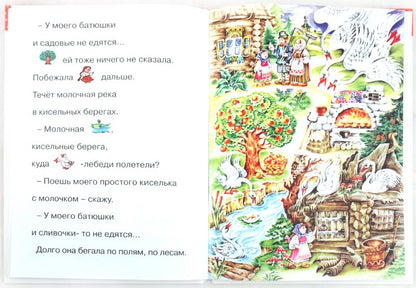 – У моего батюшки
и садовые не едятся...
ей тоже ничего не сказала.
Побежала дальше.
Течёт молочная река
в кисельных берегах.
– Молочная ,
кисельные берега,
куда -лебеди полетели?
– Поешь моего простого киселька
с молочком – скажу.
– У моего батюшки
и сливочки- то не едятся...
Долго она бегала по полям, по лесам.